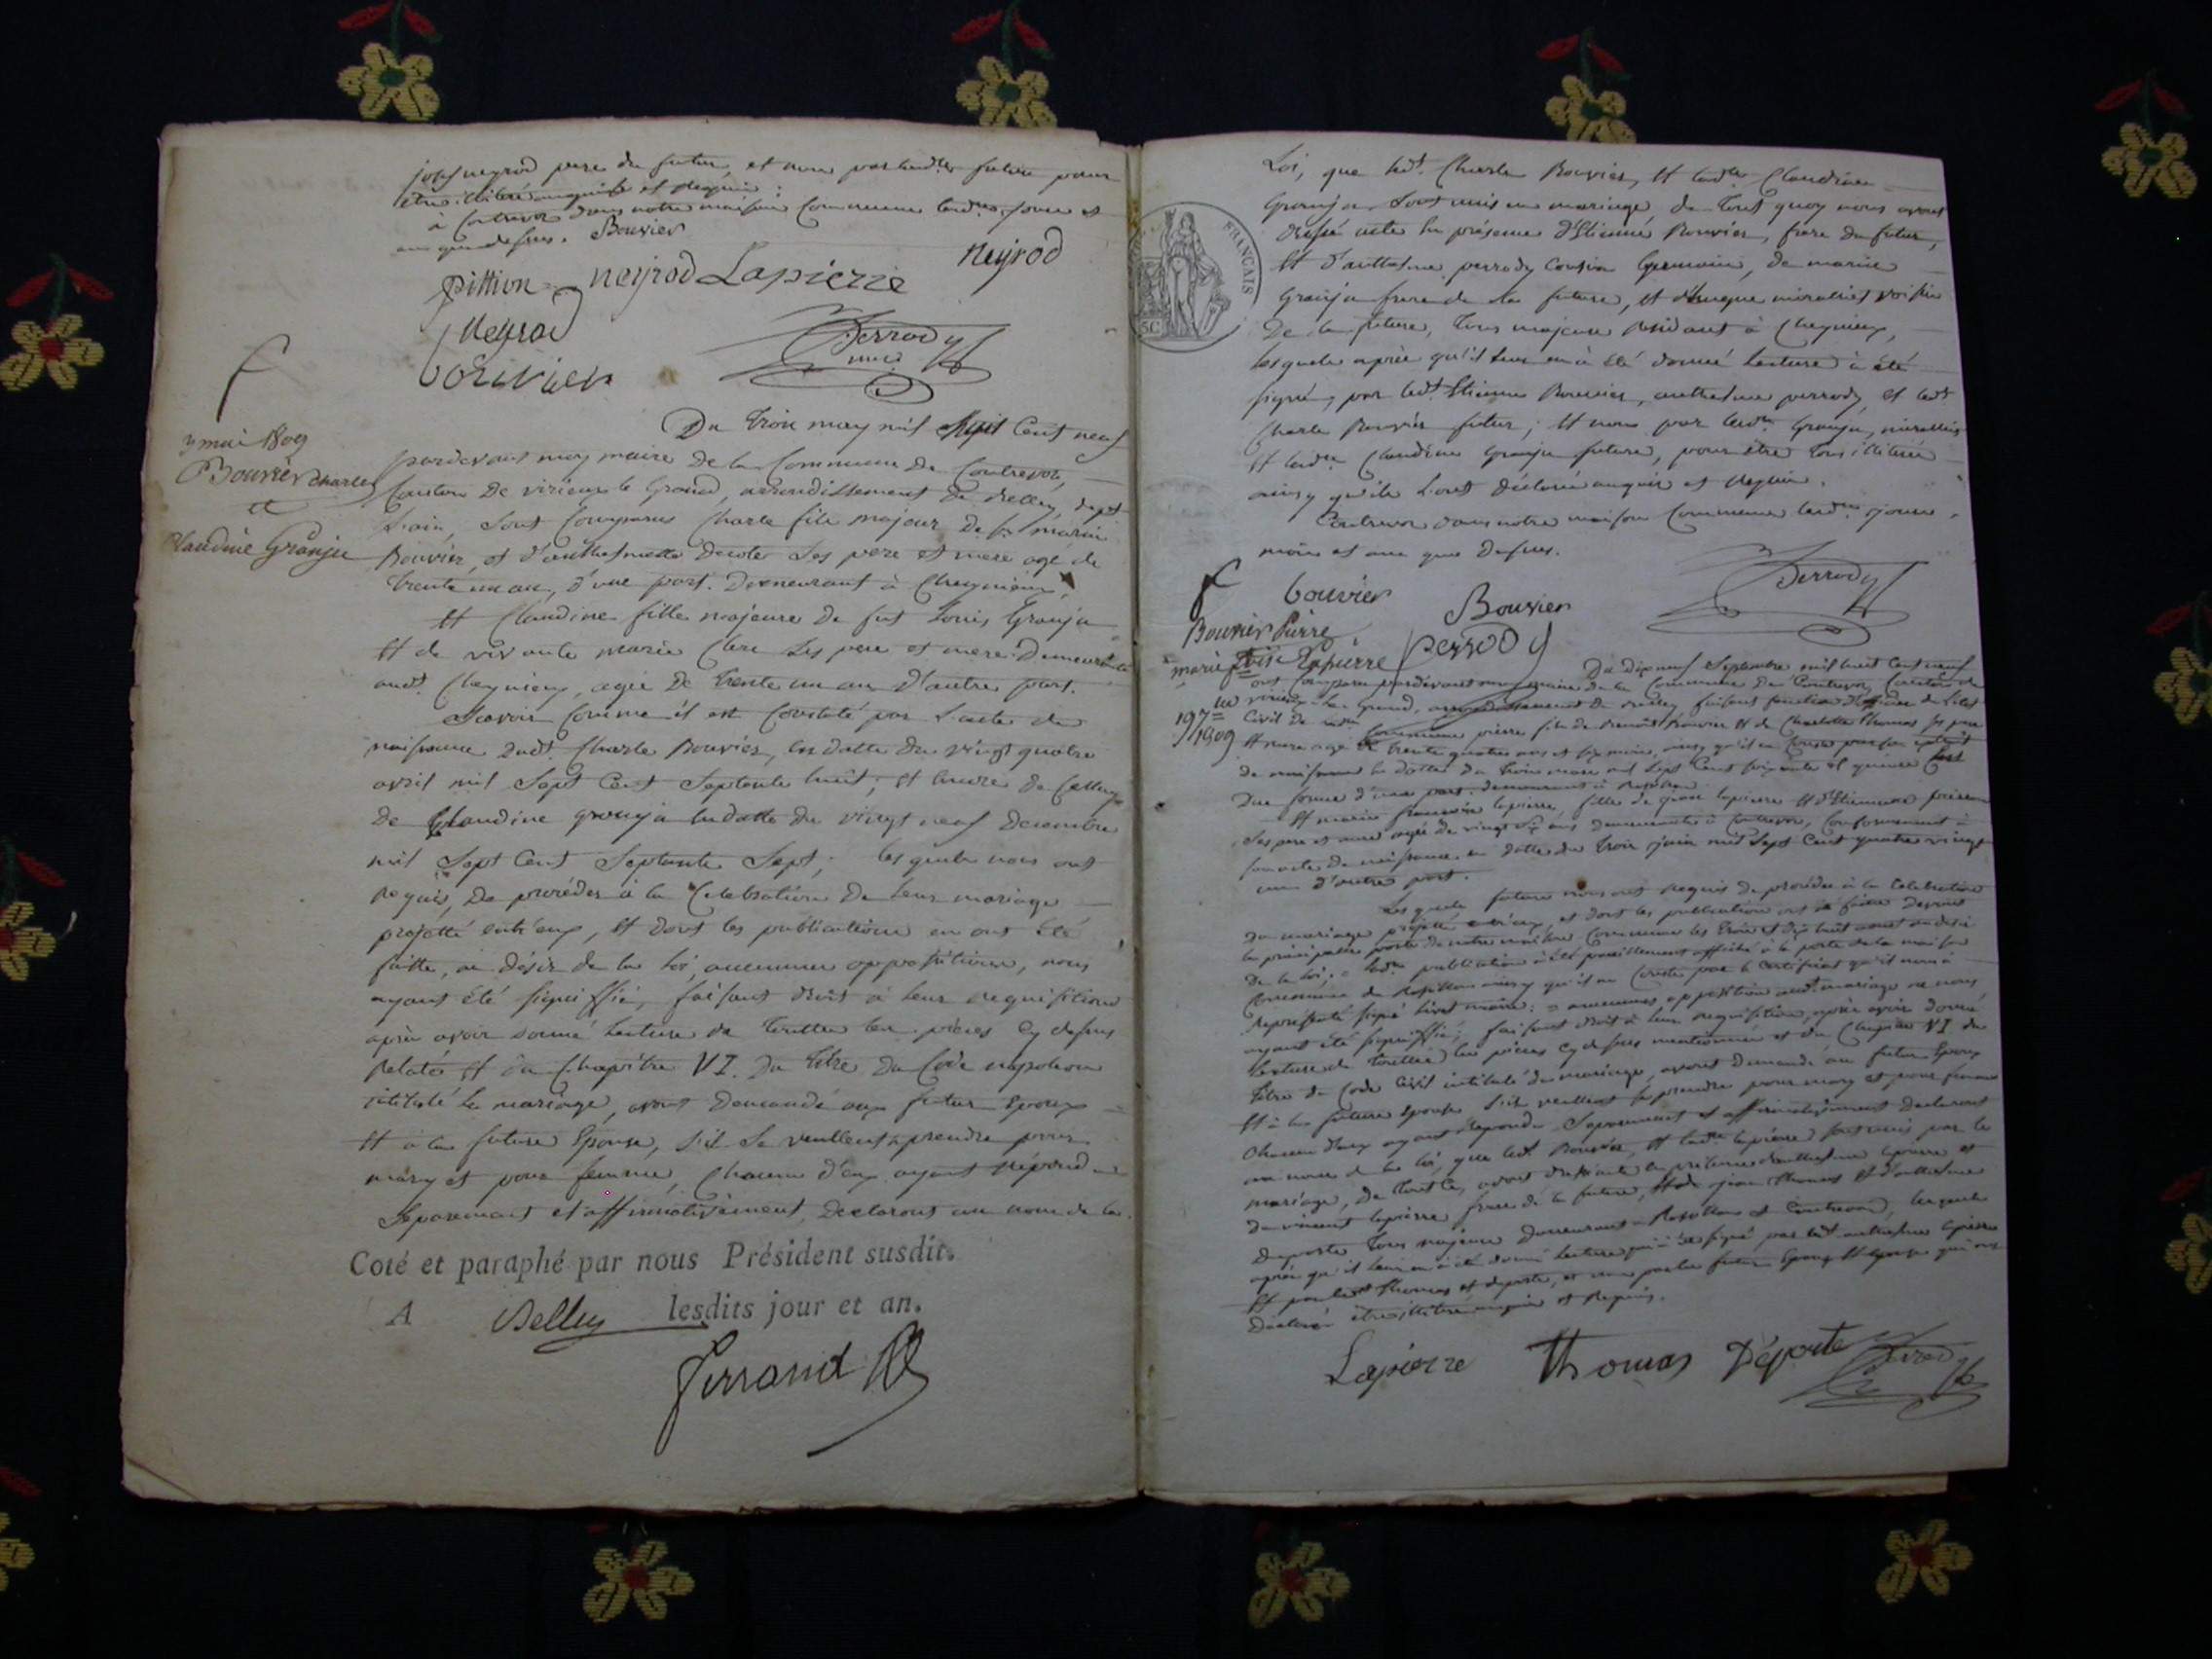 josph neyrod pere du futur, et non par lad.te future pour
être illiteré enquise et requise.
à Contrevoz dans notre maison Commune lesd. jours et
an que dessus. Bouvier
pittion neyrod Lapierre neyrod
Neyrod
bouvier
Perrody
3 mai 1809
Bouvier Charles
et
Claudine Granju
Du Trois may mil huit Cent neuf
pardevant moy maire de la Commune de Contrevoz,
Canton de virieux le Grand, arrondissement de Belley, dept
L'ain, Sont Comparus Charle fils majeur de fs marin
Bouvier, et d'anthelmette Ses pere et mere agé de
trente un an, d'une part. Demeurant à Cheynieu,
Et Claudine fille majeure de fut Louis Granju
Et de vivante marie Clere Ses pere et mere Demeurante
audt. Cheynieux, agée de trente un an d'autre part.
Scavoir Comme il est Constaté par L'acte de
naissance dudt. Charle Bouvier, en datte du vingt quatre
avril mil Sept Cent Septante huit; Et encore de Celluy
De Claudine granju en datte du vingt neuf Decembre
mil Sept Cent Septante Sept; lesquels nous ont
requis, De procéder à la Celebration De leur mariage
projetté entr'eux, Et dont les publications en ont été
faitte, au désir de la loi, aucunnes oppositions, nous
ayant été Signiffié, faisant droit à leur requisition
après avoir donné lecture de touttes les pièces Cy dessus
relatés Et du Chapitre VI. Du titre Du Code napoleon
intitulé le mariage, avons Demandé aux futur Epoux
Et à la future Epouse, s'il Se veullent prendre pour
mary et pour femme, Chacun d'eux ayant répond
Séparement et affirmativement, Declarons au nom de la
Coté et paraphé par nous Président susdit.
A Belley lesdits jour et an.
Ferrand
Loi, que ledt. Charle Bouvier, Et ladte. Claudine
Granju Sont unis en mariage, de tout quoy nous avons
dressé acte en présence d'Etienne Bouvier, frere du futur,
Et d'anthelme perrody Cousin Germain, de marin
Granju frere de la future, et voisin
De la future, tous majeurs residants à Cheynieux,
lesquels après qu'il leur en à été donné lecture à été
signé, par ledt. Etienne Bouvier, anthelme perrody, et ledt
Charle Bouvier futur; Et non par lesdts Granju,
Et ladte. Claudine Granju future, pour être tous illiterés
ainsy qu'ils l'ont déclaré enquis et requis.
Contrevoz dans notre maison Commune lesdts. jours,
mois et an que dessus.
bouvier Bouvier Perrody
perrody
Bouvier Pierre
marie fçoise Lapierre
19 7bre
1809
Du dix neuf Septembre mil huit Cent neuf
ont Comparu pardevant moy maire de la Commune De Contrevoz, Canton de
virieux le Grand, arrondissement de Belley, faisant fonction d'officier de l'état
Civil de ladte Commune pierre fils de Benoit Bouvier Et de Charlotte Thomas Ses pere
Et mere agé de trente quatre ans et six mois, ainsy qu'il en Conste par son extrait
de naissance en datte du trois mars mil Sept Cent Soixante et quinze
Due forme d'une part. demeurant à Rossillon
Et marie francoise lapierre, fille de
Ses pere et mere agée de vingt Six ans demeurante à Contrevoz, Conformement à
son acte de naissance en datte du trois juin mil Sept Cent quatre vingt
d'autre part.
Lesquels futurs nous ont requis de procéder à la Celebration
Du mariage projetté entr'eux, et dont les publications ont été faitte Devant
la principalle porte de notre maison Commune les trois et dix huit aout au desir
De la loi; ladte publication à été pareillement affiché à la porte de la maison
Commune de Rossillon ainsy qu'il en Conste par le Certificat qu'il nous à
representé signé maire; aucunnes opposition audt. mariage ne nous
ayant été signiffié; faisant droit à leur requisition, après avoir donné
Lecture de touttes les pièces Cy dessus mentionnés et du Chapitre VI du
titre du Code Civil intitulé du mariage, avons Demandé au futur Epoux
Et à la future Epouse S'ils veullent se prendre pour mary et pour femme
Chacun d'eux ayant répondu Separement et affirmativement declarons
au nom de la loi, que ledt. Bouvier, Et ladte lapierre sont unis par le
mariage, De tout Ce, avons dressé acte en présence d'anthelme lapierre et
De vincent lapierre frere de la future, Et de jean Thomas Et d'anthelme
Deporte tous majeurs Demeurant à Rossillon et Contrevoz, lesquels
après qu'il leur en à été donné lecture qui à été signé par ledt anthelme lapierre
Et par ledt Thomas et deporte, et non par les futurs Epoux Et Epouse qui ont
Declaré être illiteré enquis et requis.
Lapierre Thomas Déporte Perrody